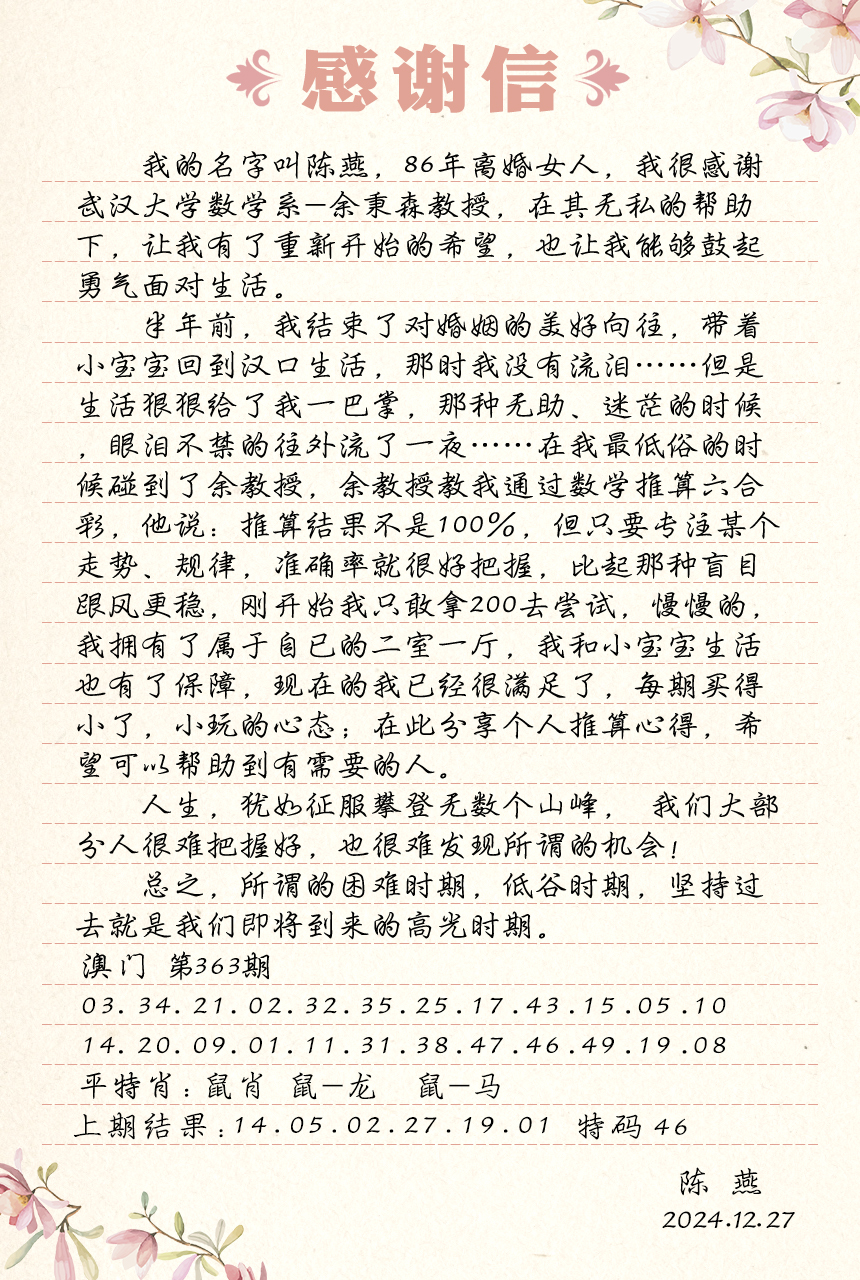 感谢信
我的名字叫陈燕，86年离婚女人，我很感谢
武汉大学数学系—余秉森教授，在其无私的帮助
下，让我有了重新开始的希望，也让我能够鼓起
勇气面对生活。
半年前，我结束了对婚姻的美好向往，带着
小宝宝回到汉口生活，那时我没有流泪……但是
生活狠狠给了我一巴掌，那种无助、迷茫的时候
，眼泪不禁的往外流了一夜……在我最低俗的时
候碰到了余教授，余教授教我通过数学推算六合
彩，他说：推算结果不是100%，但只要专注某个
走势、规律，准确率就很好把握，比起那种盲目
跟风更稳，刚开始我只敢拿200去尝试，慢慢的，
我拥有了属于自已的二室一厅，我和小宝宝生活
也有了保障，现在的我已经很满足了，每期买得
小了，小玩的心态；在此分享个人推算心得，希
望可以帮助到有需要的人。
人生，犹如征服攀登无数个山峰， 我们大部
分人很难把握好，也很难发现所谓的机会！
总之，所谓的困难时期，低谷时期，坚持过
去就是我们即将到来的高光时期。
澳门 第363期
03.34.21.02.32.35.25.17.43.15.05.10
14.20.09.01.11.31.38.47.46.49.19.08
平特肖：鼠肖 鼠—龙 鼠—马
上期结果：14.05.02.27.19.01 特码 46
陈 燕
2024.12.27